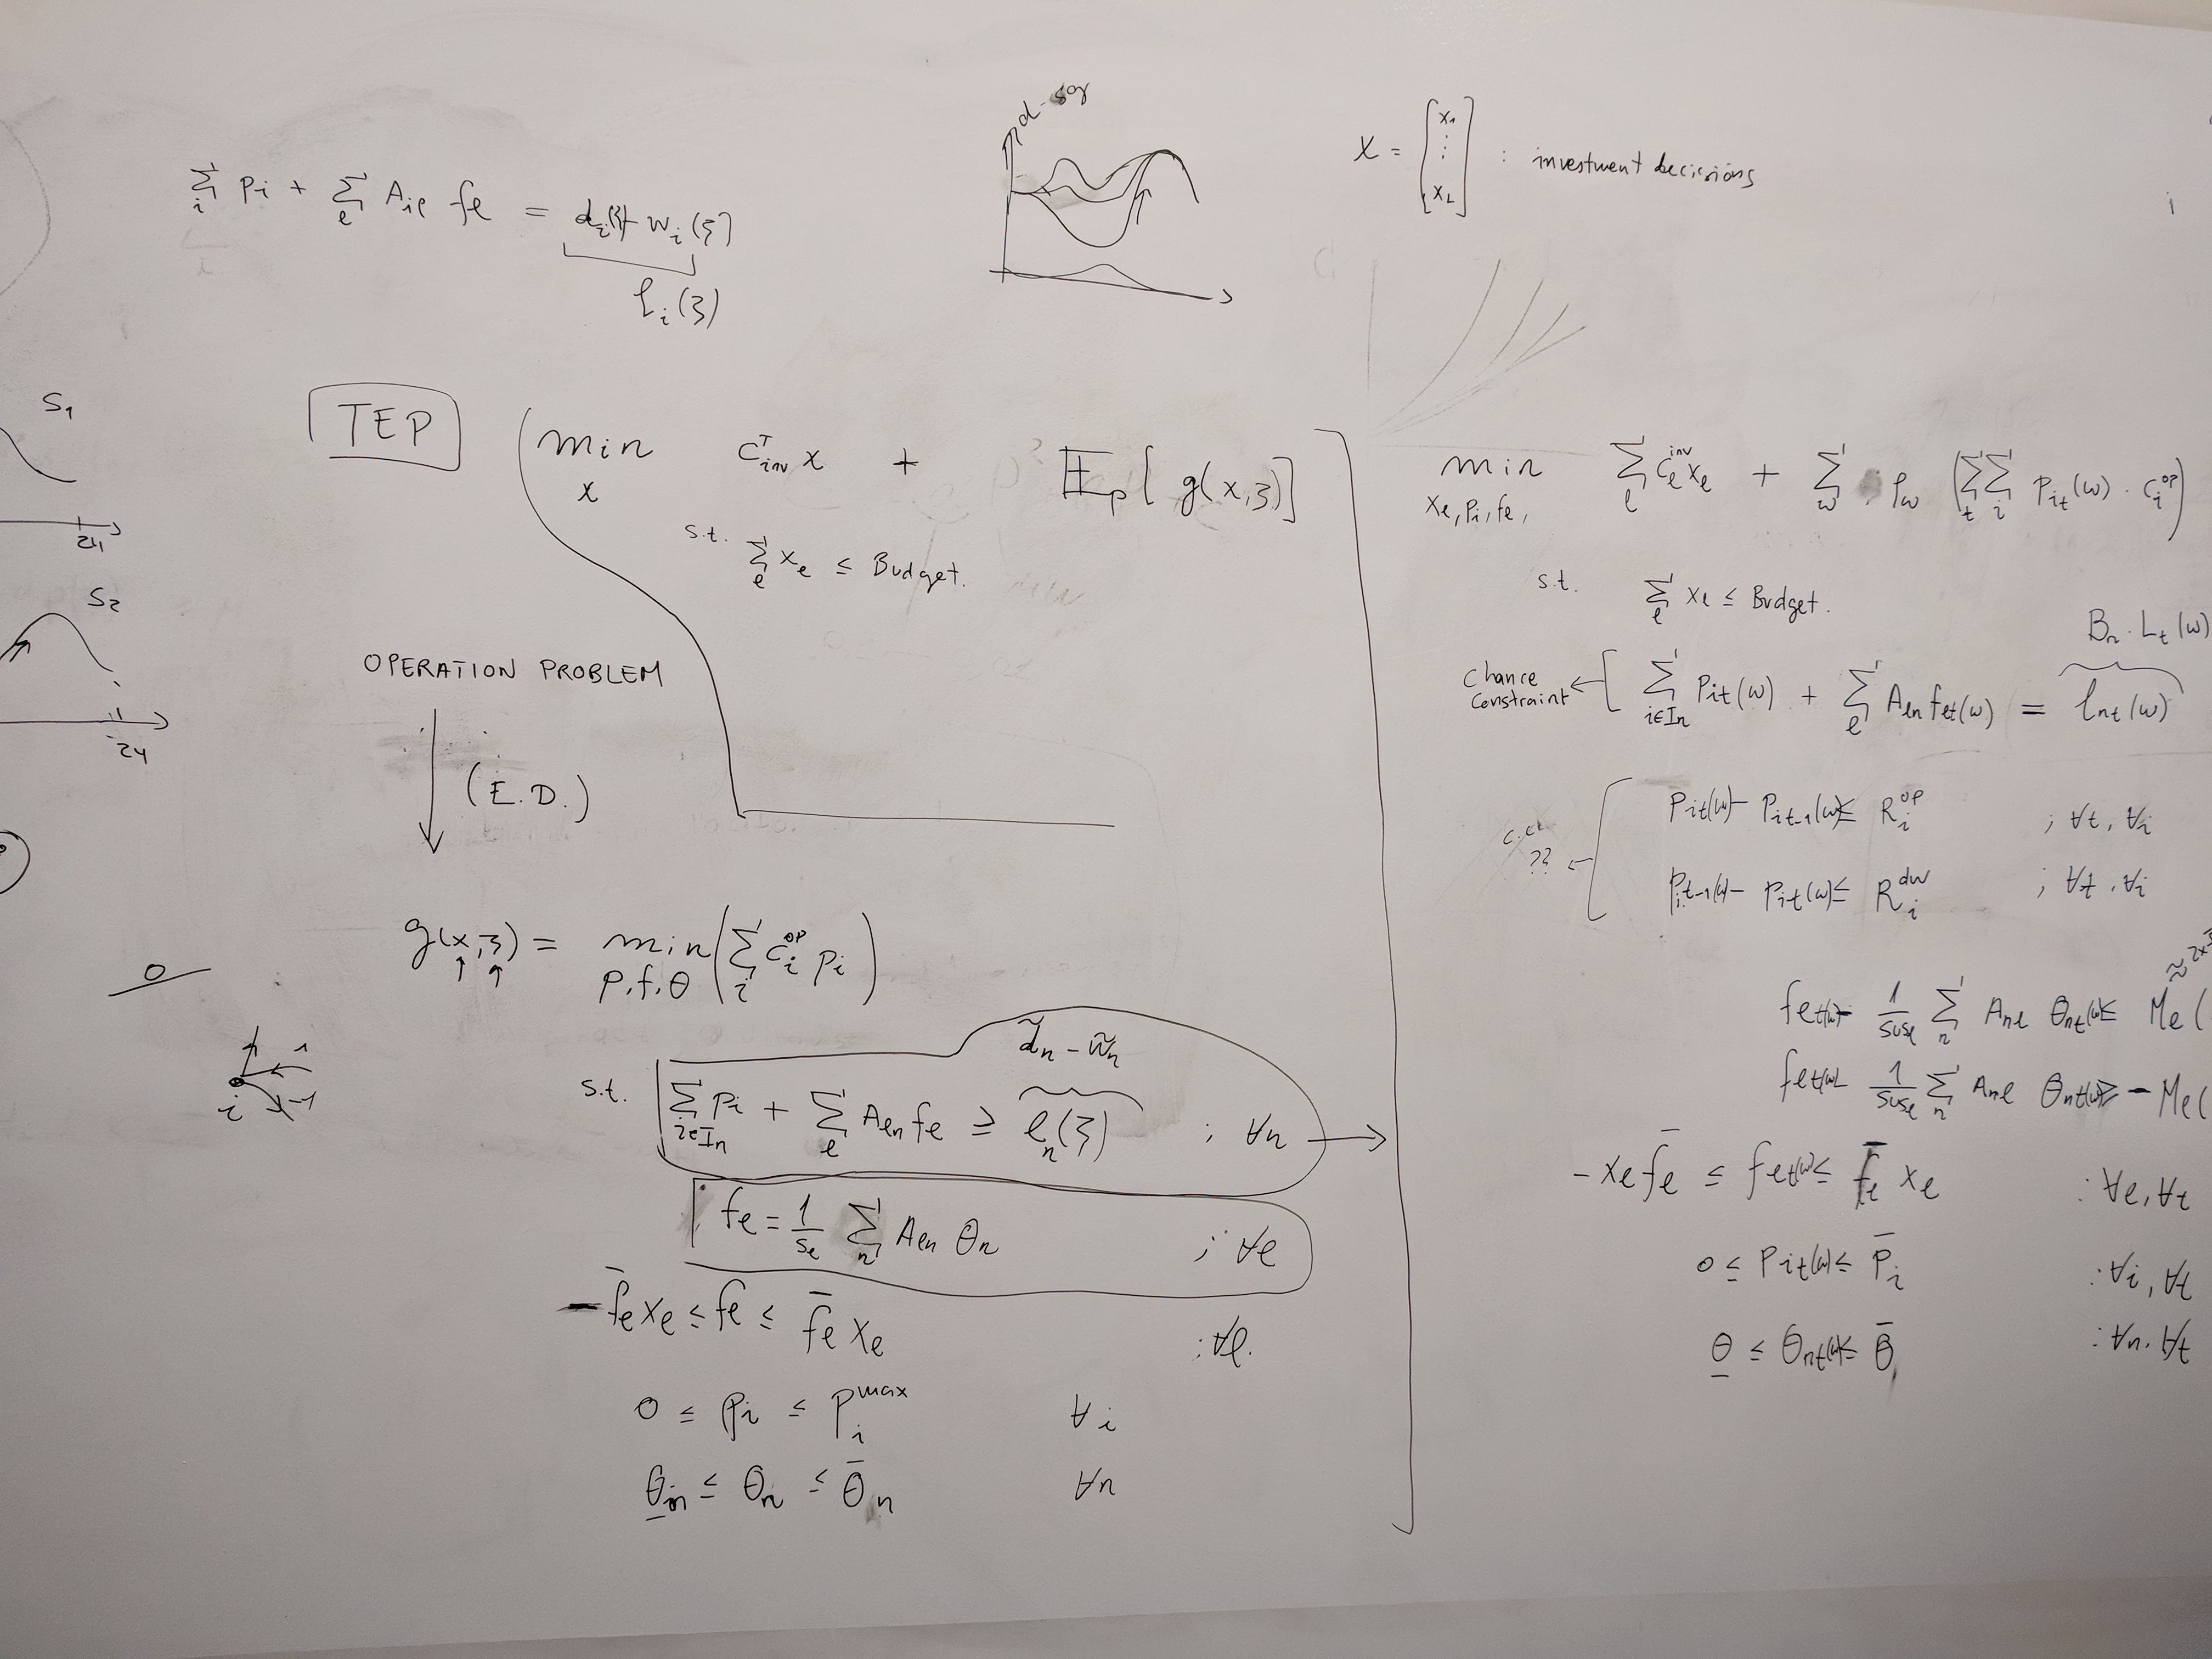 ∑_i p_i + ∑_e A_ie f_e = d_i(ξ) - w_i(ξ)
l_i(ξ)
d - sg
X = [x_1 ⋮ x_L] : investment decicions
S_1
24
S_2
24
TEP
min_x C_inv^T x + E_p[ g(x,ξ) ]
s.t. ∑_e x_e ≤ Budget.
OPERATION PROBLEM
(E.D.)
g(x,ξ) = min_{p,f,θ} ( ∑_i C_i^op p_i )
i
1
-1
d̃_n - w̃_n
s.t. ∑_{i∈I_n} p_i + ∑_e A_en f_e ≥ l_n(ξ) ; ∀n
f_e = 1/S_e ∑_n A_en θ_n ; ∀e
-f̄_e x_e ≤ f_e ≤ f̄_e x_e : ∀l.
0 ≤ p_i ≤ p_i^max ∀i
θ_n ≤ θ_n ≤ θ̄_n ∀n
min_{x_e, p_i, f_e,} ∑_l C_e^inv x_e + ∑_w ρ_w ( ∑_t ∑_i p_it(w) · C_i^op )
s.t. ∑_e x_l ≤ Budget.
B_n · L_t(w)
Chance Constraint ← [ ∑_{i∈I_n} p_it(w) + ∑_e A_en f_et(w) = l_nt(w)
??
p_it(w) - p_it-1(w) ≤ R_i^up ; ∀t, ∀i
p_it-1(w) - p_it(w) ≤ R_i^dw ; ∀t, ∀i
f_et(w) - 1/sus_e ∑_n A_ne θ_nt(w) ≤ M_e (
f_et(w) - 1/sus_e ∑_n A_ne θ_nt(w) ≥ - M_e (
- x_e f̄_e ≤ f_et(w) ≤ f̄_e x_e : ∀e, ∀t
0 ≤ p_it(w) ≤ p̄_i : ∀i, ∀t
θ ≤ θ_nt(w) ≤ θ̄ : ∀n, ∀t